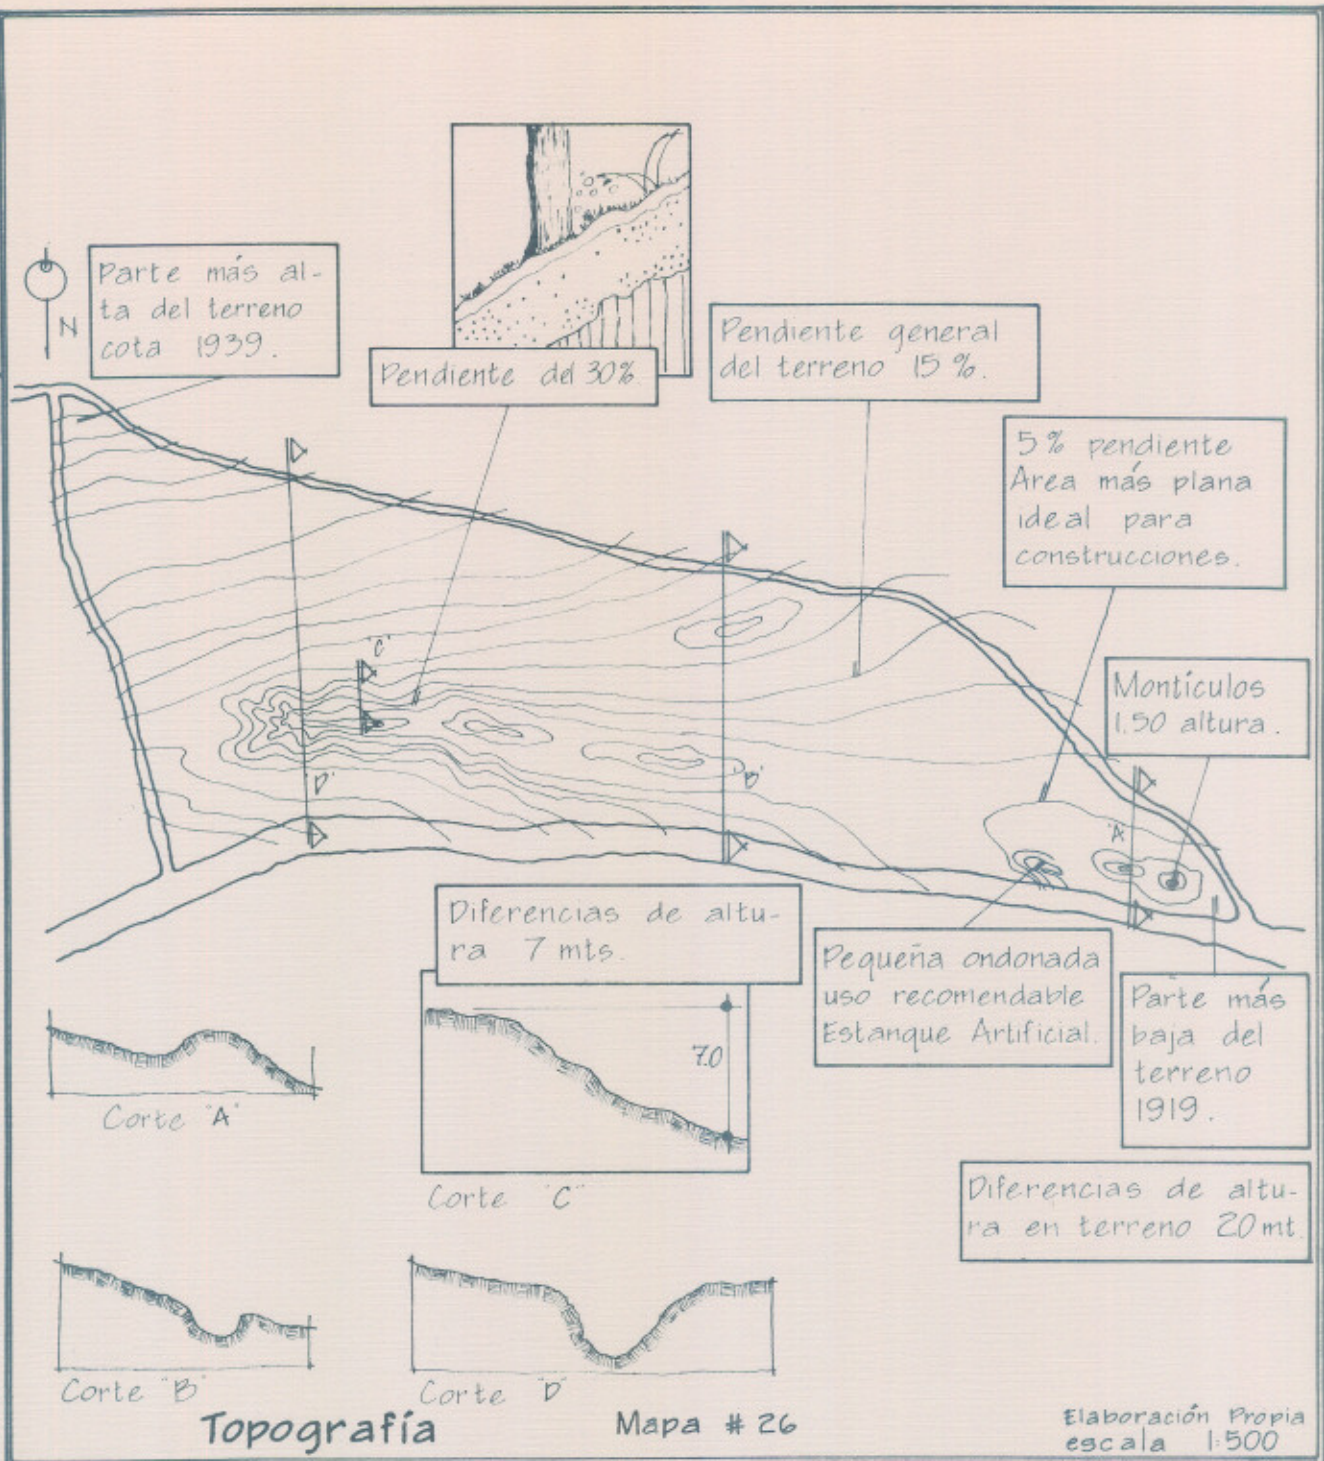 Parte más al-
ta del terreno
cota 1939.
N
Pendiente del 30%.
Pendiente general
del terreno 15 %.
5% pendiente
Area más plana
ideal para
construcciones.
Montículos
1.50 altura.
"C"
"D"
"B"
"A"
Diferencias de altu-
ra 7 mts.
Pequeña ondonada
uso recomendable
Estanque Artificial.
Parte más
baja del
terreno
1919.
7.0
Corte "A"
Corte "C"
Diferencias de altu-
ra en terreno 20 mt.
Corte "B"
Corte "D"
Topografía
Mapa # 26
Elaboración Propia
escala 1:500